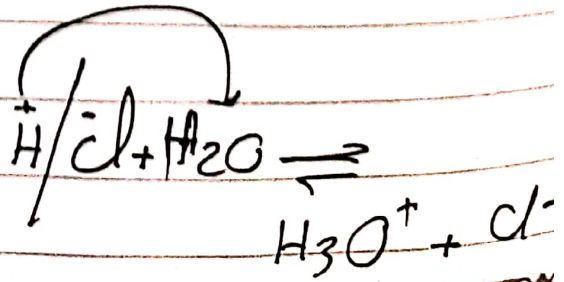 H⁺/Cl⁻ + H2O ⇌
H3O⁺ + Cl⁻